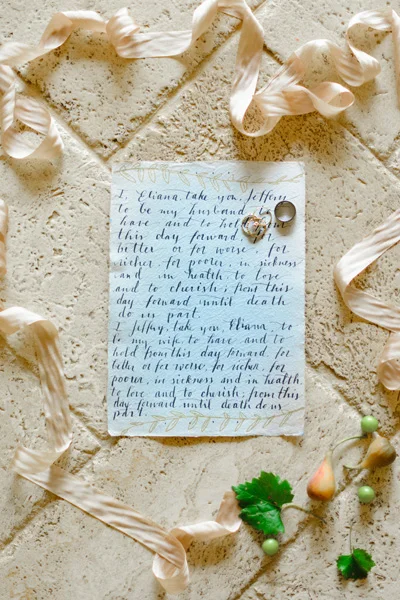 I, Eliana, take you, Jeffery
to be my husband, to
have and to hold from
this day forward,
better or for worse, for
richer, for poorer, in sickness
and in health, to love
and to cherish; from this
day forward until death
do us part.
I Jeffry, take you, Eliana, to
be my wife, to have and to
hold from this day forward, for
better or for worse, for richer, for
poorer, in sickness and in health,
to love and to cherish; from this
day forward until death do us
part.